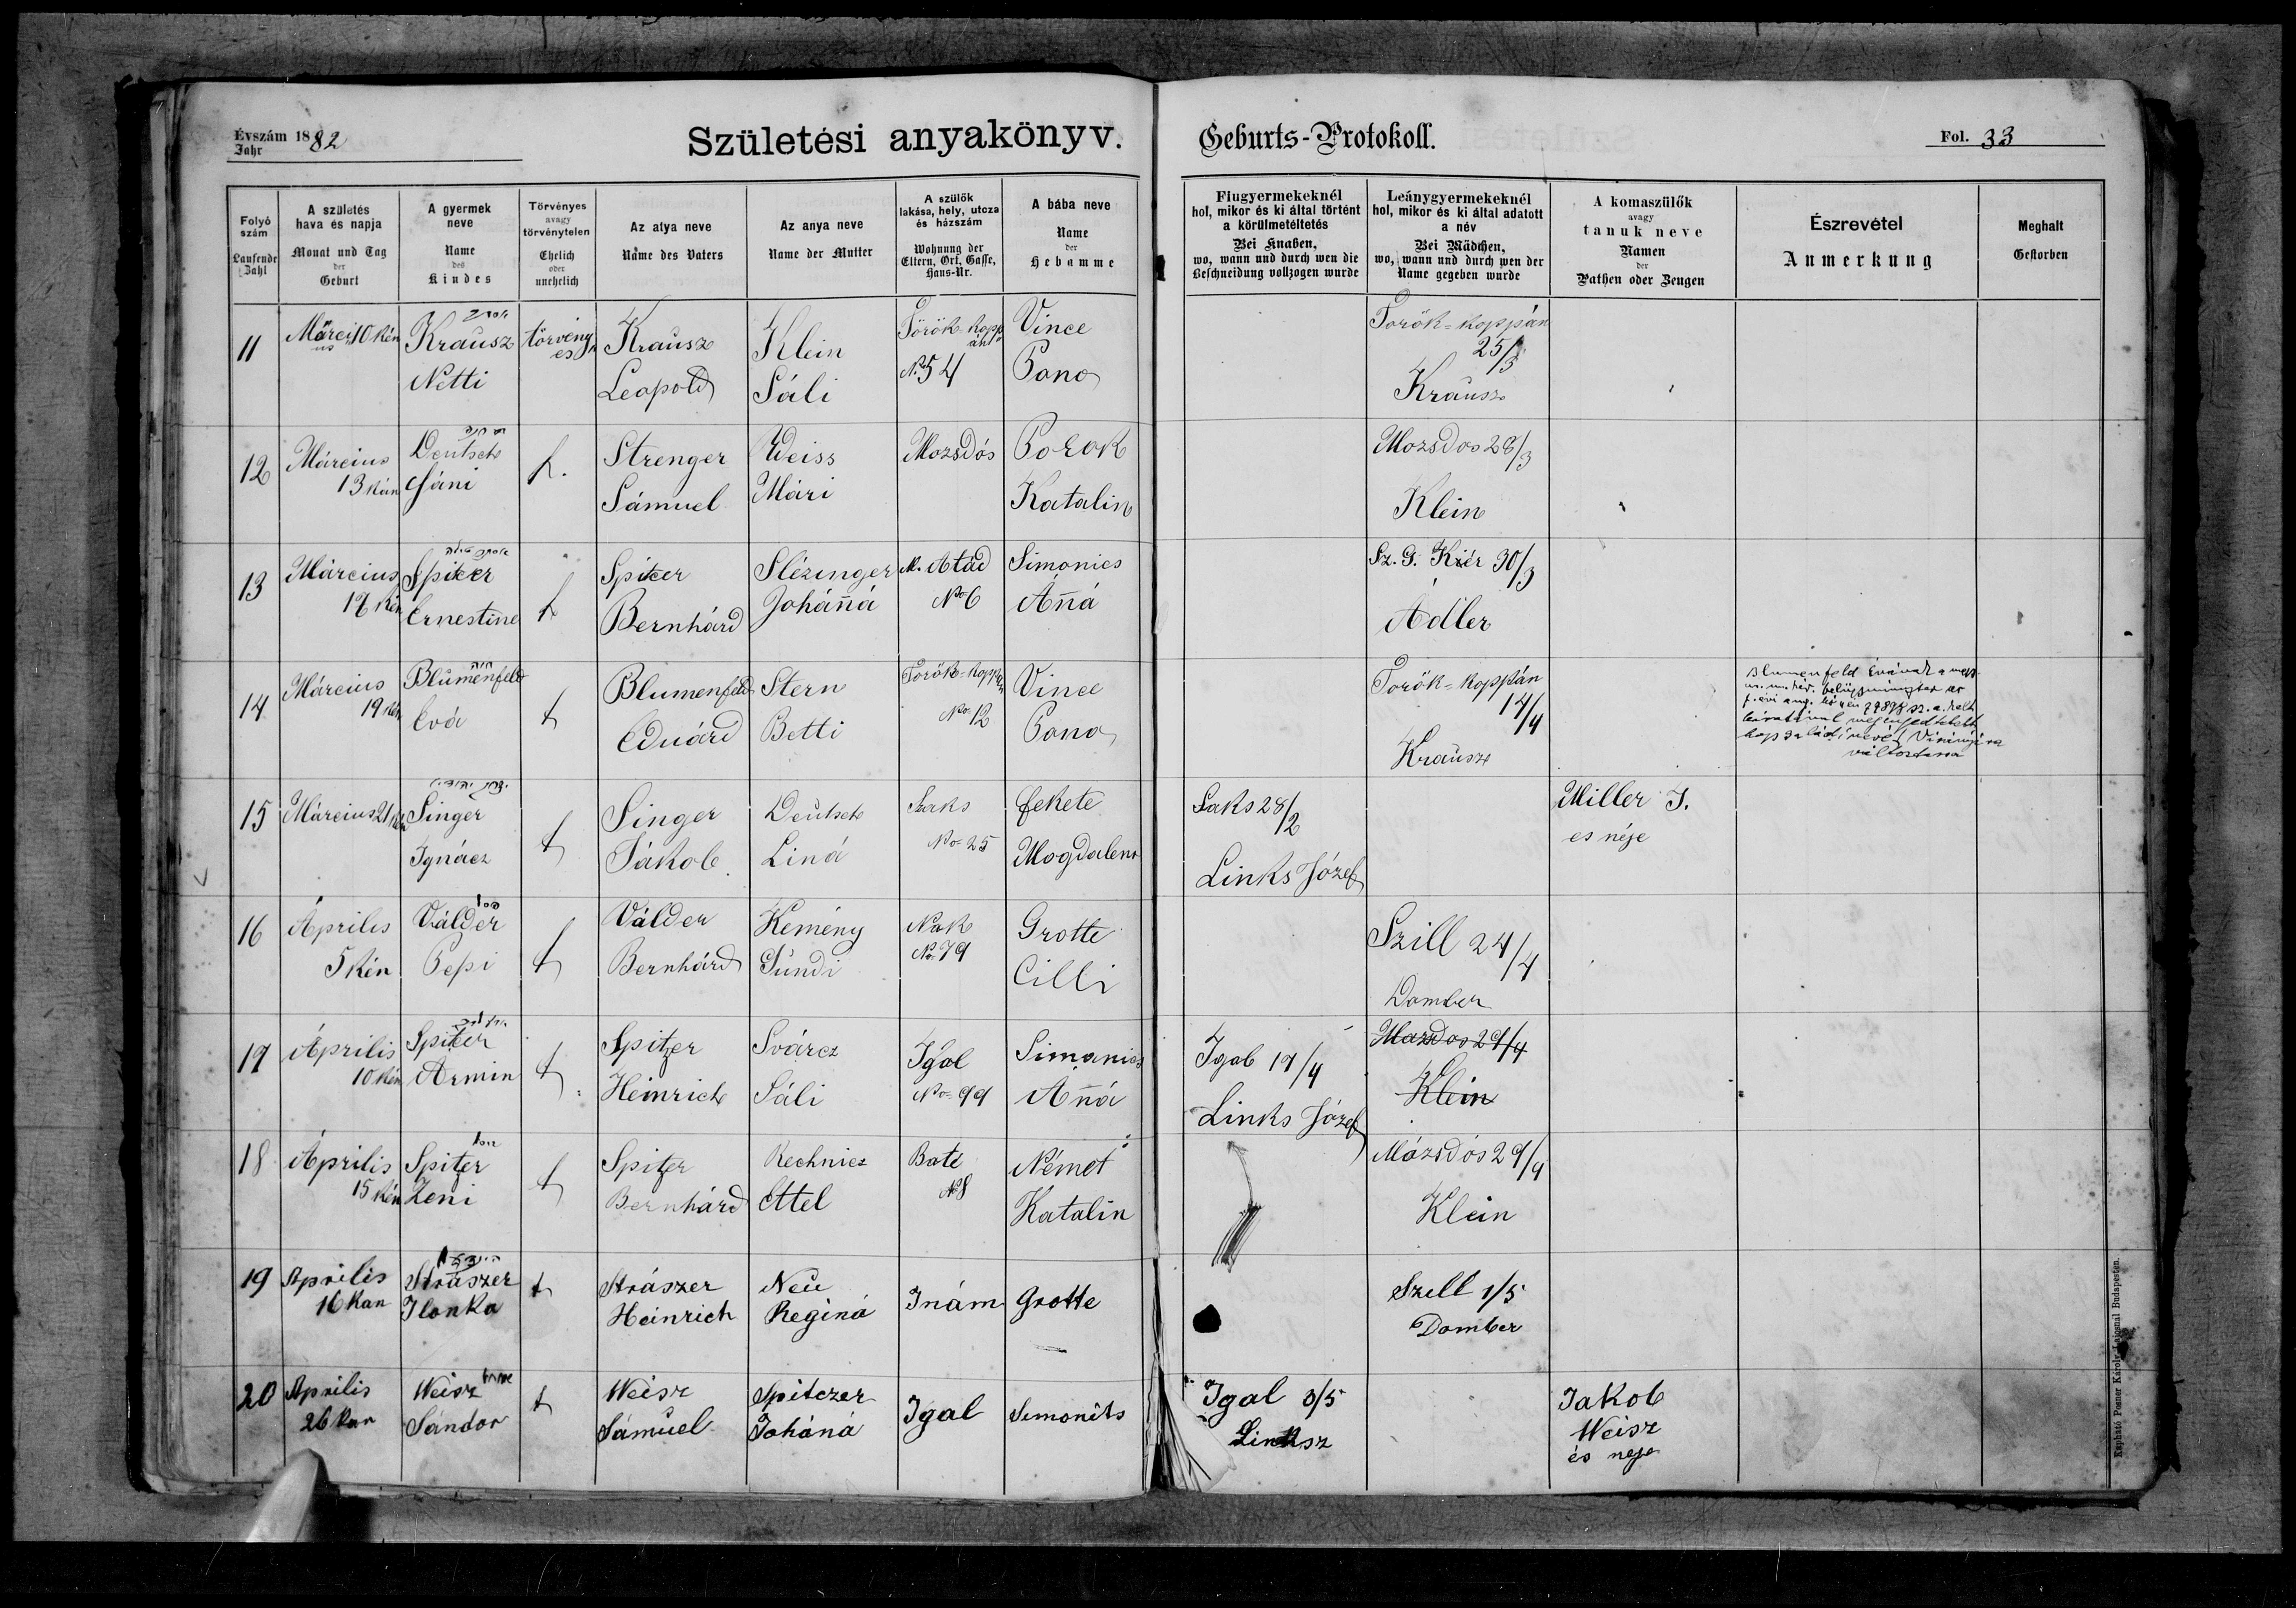 Évszám 1882
Jahr
Születési anyakönyv.
Geburts-Protokoll.
Fol. 33
Folyó szám
Laufende Zahl
A születés hava és napja
Monat und Tag der Geburt
A gyermek neve
Name des Kindes
Törvényes avagy törvénytelen
Ehelich oder unehelich
Az atya neve
Name des Vaters
Az anya neve
Name der Mutter
A szülők lakása, hely, utcza és házszám
Wohnung der Eltern, Ort, Gasse, Haus-Nr.
A bába neve
Name der Hebamme
Fiugyermekeknél hol, mikor és ki által történt a körülmetéltetés
Bei Knaben, wo, wann und durch wen die Beschneidung vollzogen wurde
Leánygyermekeknél hol, mikor és ki által adatott a név
Bei Mädchen, wo, wann und durch wen der Name gegeben wurde
A komaszülők avagy tanuk neve
Namen der Pathen oder Zeugen
Észrevétel
Anmerkung
Meghalt
Gestorben
11
Március 10 kén
Krausz
Netti
törvényes
Krausz
Leopold
Klein
Sáli
Török-Koppán
No. 54
Vince
Török-Koppán
25/3
Krausz
12
Március
13 kán
Deutsch
Jáni
t.
Strenger
Sámuel
Weiss
Mári
Mozsdós
Katalin
Mozsdos 28/3
Klein
13
Március
Spitzer
Ernestine
t
Spitzer
Bernhárd
Slézinger
Joháñá
M. Atád
No 6
Simonics
Áñá
Sz. G. 30/3
Adler
14
Március
19 kén
חוה
Blumenfeld
Évá
t
Blumenfeld
Eduárd
Stern
Betti
Török-Koppán
No. 12
Vince
Török-Koppán
14/4
Krausz
Blumenfeld Évának a
15
Március 21 kén
Singer
Ignácz
t
Singer
Jákob
Deutsch
Liná
Szaks
No. 25
Fekete
Magdalena
Saks 28/2
Links József
Miller J.
es néje
16
Április
5 kén
Válder
Pepi
t
Válder
Bernhárd
Kemény
Sundi
Nak
No. 79
Grotte
Cilli
Szill 24/4
Domber
17
Április
10 kén
Spitzer
Armin
t
Spitzer
Heinrich
Svárcz
Sáli
Igal
No. 99
Simonics
Áñá
Igal 17/4
Links József
Mozsdos 29/4
Klein
18
Április
15 kén
Spitzer
Zeni
t
Spitzer
Bernhárd
Rechnicz
Ettel
Baté
No 8
Német
Katalin
Mózsdós 29/4
Klein
19
Április
16 kan
Strászer
Ilonka
t
Strászer
Heinrich
Neu
Regina
Inám
Grotte
Szill 1/5
Domber
20
Április
26 kan
Weisz
Sándor
t
Weisz
Sámuel
Spitczer
Joháná
Igal
Simonits
Igal 3/5
Linksz
Jakob
Weisz
és neje
Kapható Posner Károly Lajosnál Budapesten.